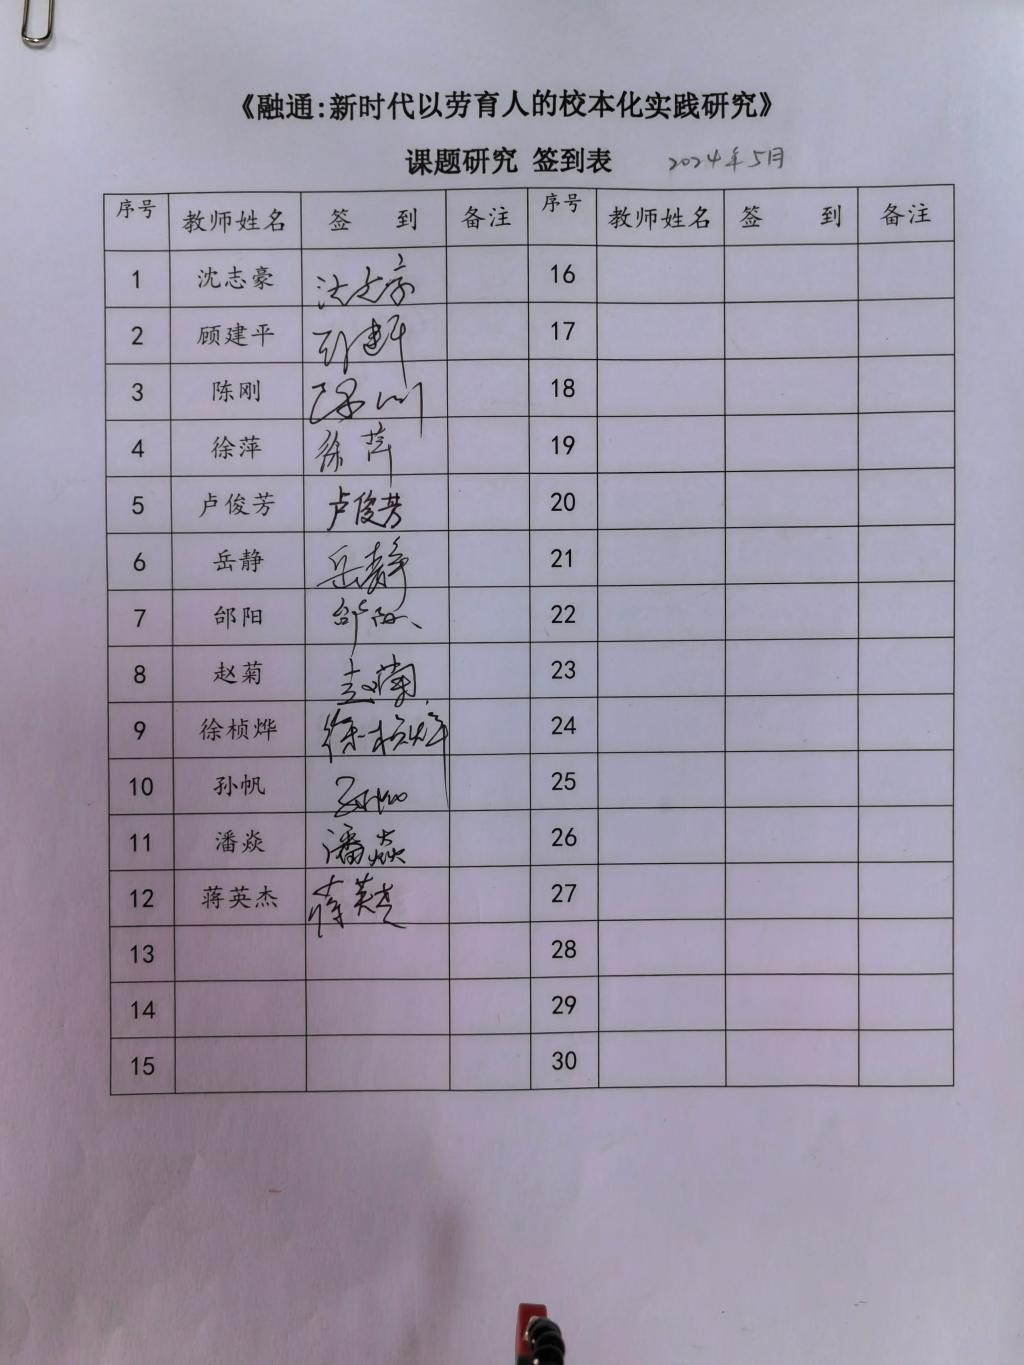 《融通:新时代以劳育人的校本化实践研究》
课题研究 签到表 2024年5月
序号 教师姓名 签 到 备注 序号 教师姓名 签 到 备注
1 沈志豪 沈志豪 16
2 顾建平 顾建平 17
3 陈刚 陈刚 18
4 徐萍 徐萍 19
5 卢俊芳 卢俊芳 20
6 岳静 岳静 21
7 邰阳 邰阳 22
8 赵菊 赵菊 23
9 徐桢烨 徐桢烨 24
10 孙帆 孙帆 25
11 潘焱 潘焱 26
12 蒋英杰 蒋英杰 27
13 28
14 29
15 30